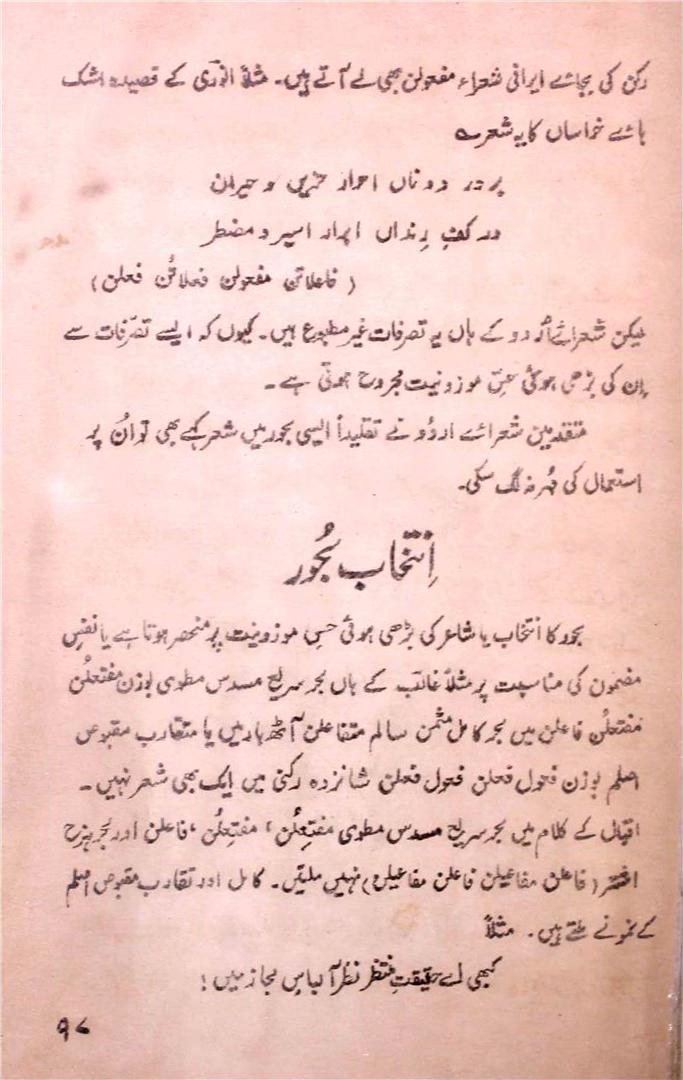 رکن کی بجائے ایرانی شعراء مفعولن بھی لے آتے ہیں۔ مثلاً انوری کے قصیدہ اشک
ہائے خراساں کا یہ شعر ؎
بر در دوناں احرار حزیں و حیران
در کفِ رِنداں ابرار اسیر و مضطر
( فاعلاتن مفعولن فعلاتُن فعلن )
لیکن شعرائے اُردو کے ہاں یہ تصرفات غیر مطبوع ہیں۔ کیوں کہ ایسے تصرّفات سے
اِن کی بڑھی ہوئی حسِّ موزونیت مجروح ہوتی ہے۔
متقدمین شعرائے اردُو نے تقلیداً ایسی بحور میں شعر کہے بھی تو اُن پر
استعمال کی مُہر نہ لگ سکی۔
اِنتخابِ بُحور
بحور کا انتخاب یا شاعر کی بڑھی ہوئی حسِ موزونیت پر منحصر ہوتا ہے یا نفسِ
مضمون کی مناسبت پر مثلاً غالب کے ہاں بحر سریع مسدس مطوی بوزن مفتعلُن
مفتعلُن فاعلن میں بحر کامل مثمن سالم متفاعلن آٹھ بار میں یا متقارب مقبوض
اصلم بوزن فعول فعلن فعول فعلن شانزدہ رکنی میں ایک بھی شعر نہیں۔
اقبال کے کلام میں بحر سریع مسدس مطوی مفتعِلُن، مفتعِلُن، فاعلن اور بحر ہزج
اشتر (فاعلن مفاعیلن فاعلن مفاعیلن) نہیں ملتیں۔ کامل اور تقارب مقبوض اصلم
کے نمونے ملتے ہیں۔ مثلاً
کبھی اے حقیقتِ منتظر نظر آ لباسِ مجاز میں!
۹۷